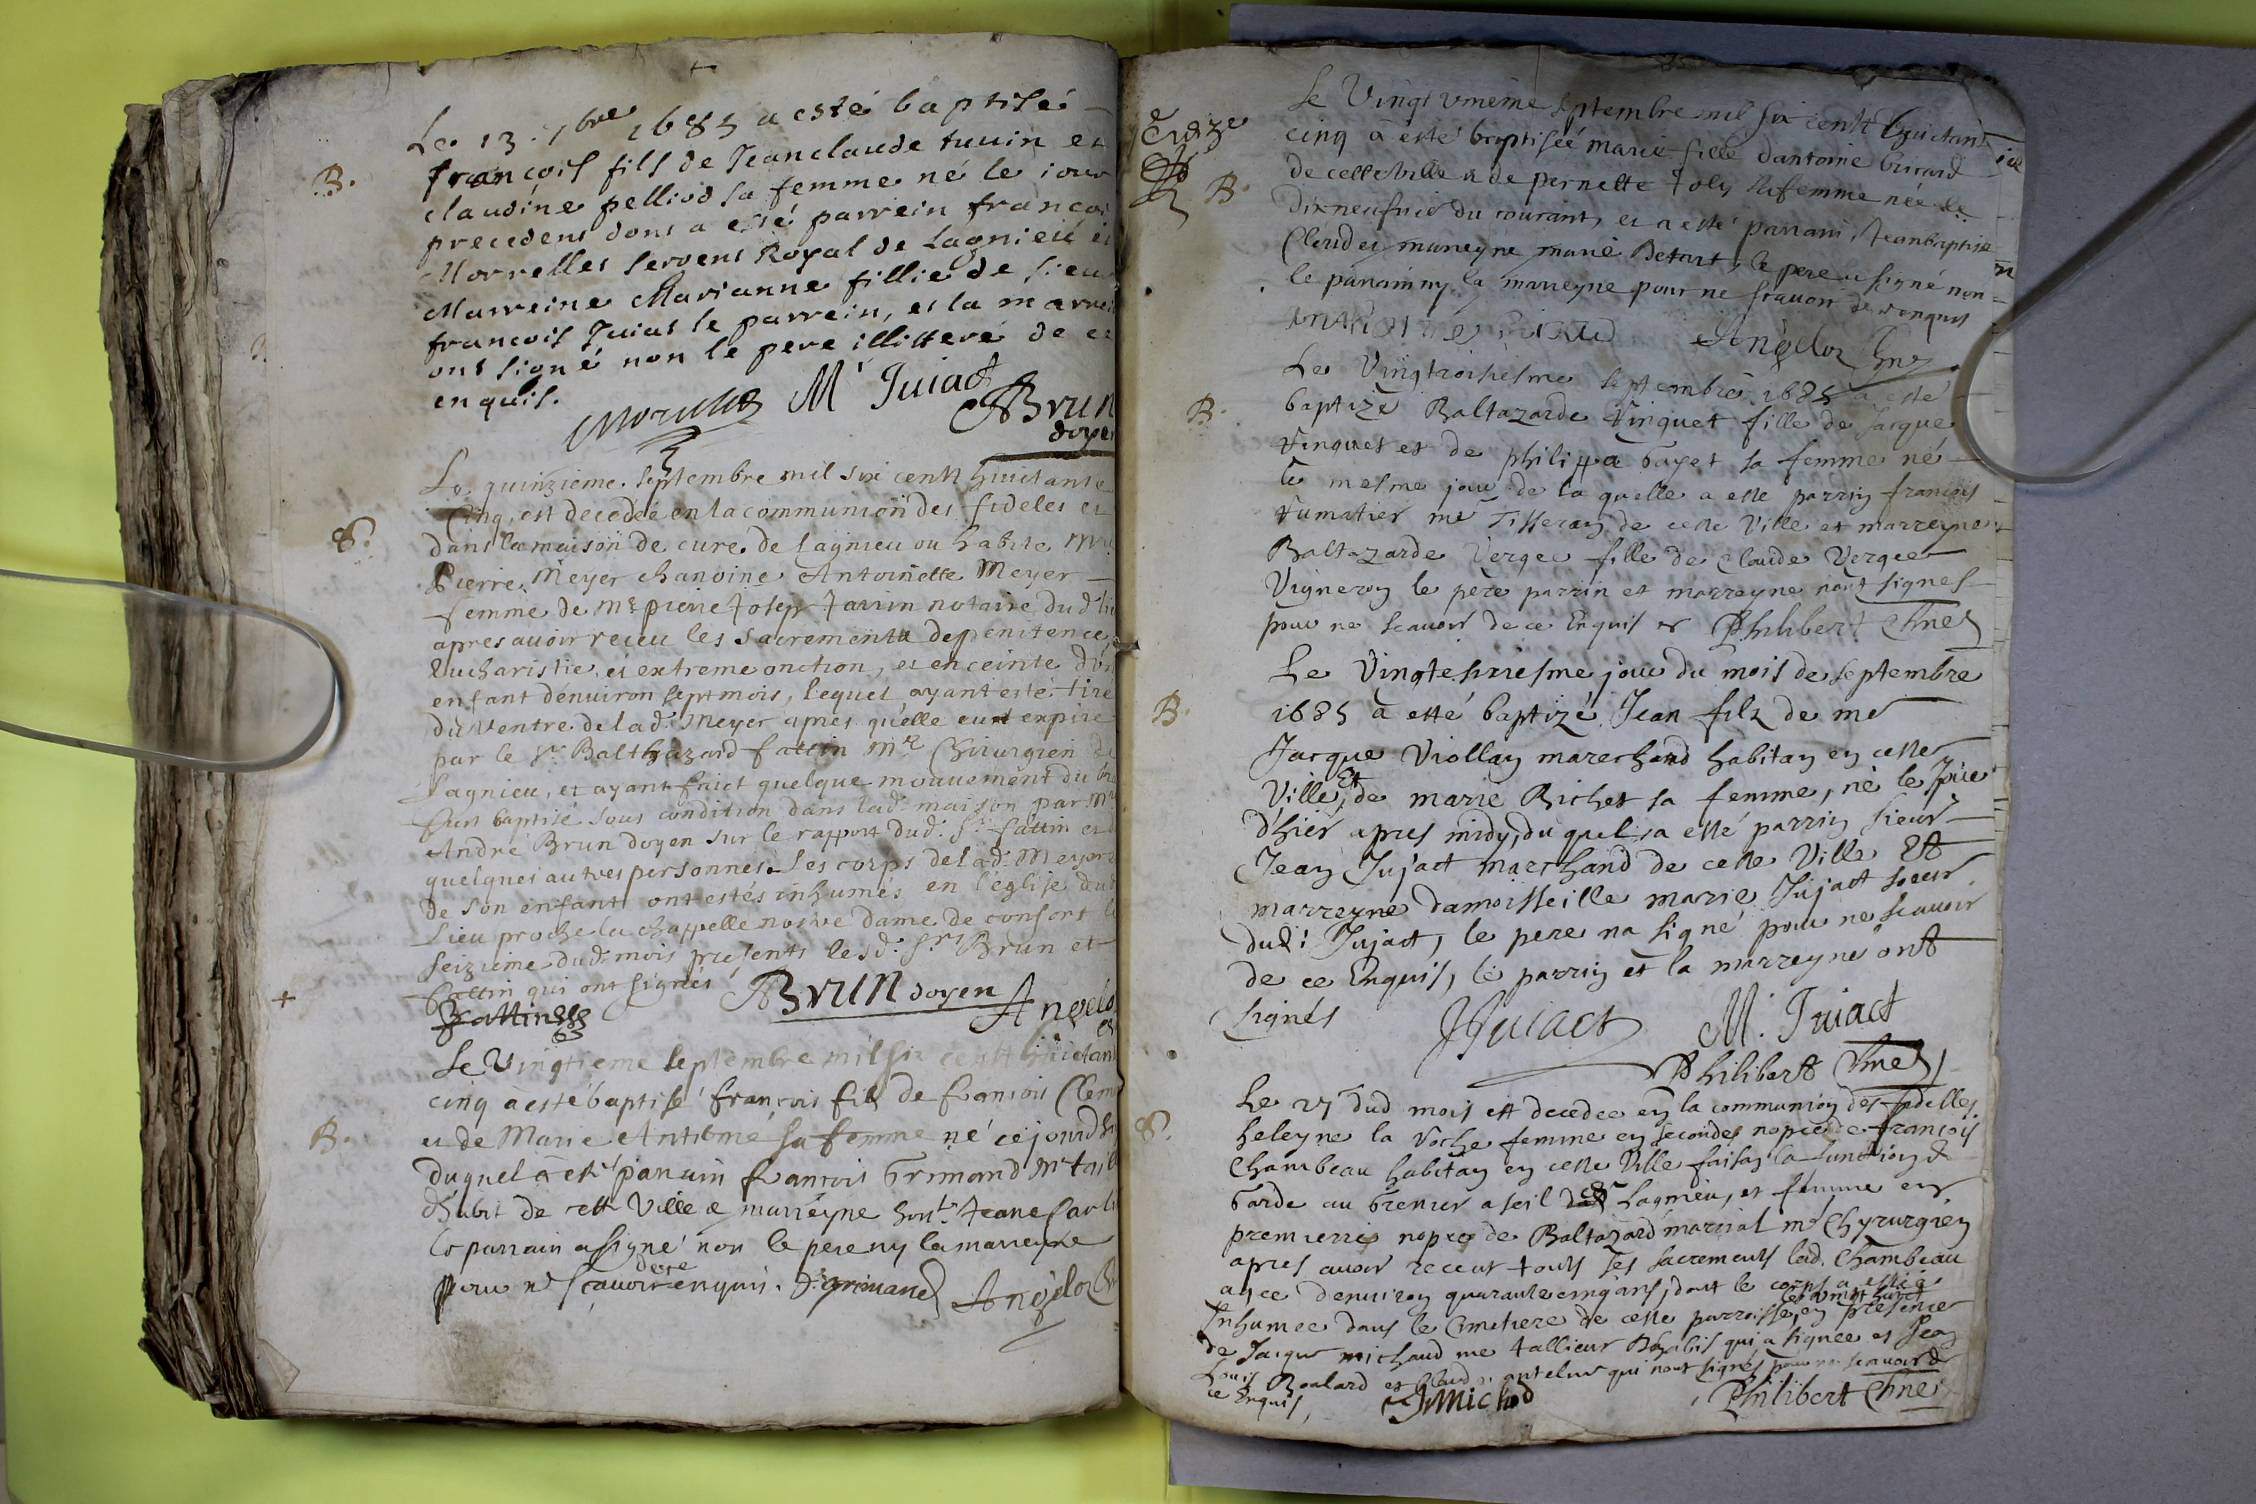 Le 13. 7bre 1685 a esté baptisé
B.
françois fils de Jeanclaude tuuin et
claudine pelliod sa femme né le iour
precedent dont a esté parrein françoi
Morrelles servent Royal de Lagnieu et
Marreine Marianne fillie de sieur
francois Juiat le parrein, et la marrei
ont signé non le pere illitteré de ce
enquis.
M. Juiact
ABrun
doyen
Le quinzieme septembre mil six cent huictante
Cinq, est decedée en la communion des fideles et
8.
dans la maison de cure de Lagnieu ou habite mre
Pierre Meyer chanoine Antoinette Meyer
femme de mr pierre Joseph Jarrin notaire dud. li
apres avoir receu les sacrements de penitence,
Eucharistie, et extreme onction, et enceinte d'vn
enfant d'enuiron sept mois, lequel ayant esté tiré
du Ventre de lad. Meyer apres qu'elle eust expiré
par le Sr Balthazard fattin Mre Chirurgien de
Lagnieu, et ayant faict quelque mouuement du bra
fust baptisé sous condition dans lad. maison par Mr
André Brun doyen sur le rapport dud. Sr. fattin et d
quelques autres personnes. Les corps de lad. Meyer e
de son enfant ont estés inhumés en l'eglise dud
Lieu proche la chappelle nostre dame de confort le
seizieme dud. mois presents lesd. Srs Brun et
fattin qui ont signés
+
Fattin
ABrun doyen
Angelo
Le Vingtieme septembre mil six cent huictan
cinq à esté baptisé françois fils de françois Clem
B.
et de Marie Antteme sa femme né cejourdhu
duquel a esté parrain françois Grimand Mr tail
d'habit de cette Ville & marreyne hont. Jeane Carl
le parrain a signé non le pere ny la marreyne
pour ne scauoir de ce enquis. F. grimand Angeloz
Treize
Le Vingt vnieme septembre mil six cent huictant
cinq à esté baptisée marie fille d'antoine Girard
B.
de cette Ville & de pernette Joly sa femme née le
dixneufuie du courant, et a esté parrain Jeanbaptiste
Clerd et marreyne marie Detart, le pere a signé non
le parain ny la marreyne pour ne scauoir de ce enquis
Angeloz
Le Vingtroisiesme septembre 1685 a esté
B.
baptizé Baltazarde Vinquet fille de Jacque
Vinquet et de philippa bayet sa femme né
le mesme jour de la quelle a esté parrin françois
tumatier me Tisseran de cette Ville et marreyne
Baltazarde Vergee fille de Claude Vergee
Vigneron le pere parrin et marreyne nont signes
pour ne scauoir de ce Enquis Philibert Chne
Le Vingtesixiesme jour du mois de septembre
B.
1685 a esté baptizé Jean filz de me
Jacque Viollay marechand habitan en cette
Ville, Et de marie Richet sa femme, né le jour
d'hier apres midy, du quel a esté parrin sieur
Jean Jujact marchand de cette Ville Et
marreyne damoisseille marie Jujact soeur
dud: Jujact, le pere na signé pour ne scauoir
de ce Enquis, le parrin et la marreyne ont
signés
JJuiact
M. Juiact
Philibert Chne
Le 27 dud mois est decedee en la communion des fidelles
8.
heleyne la Roche femme en secondes nopce de françois
Chambeau habitan en cette Ville faisan la function de
Garde au Grenier a seil de Lagnieu, et femme en
premieres nopce de Baltazard martial mr Chyrurgien
apres auoir receut touts ses sacrements lad. Chambeau
agee d'enuiron quarante cinq ans, dont le corps a esté
Inhumee dans le Cimetiere de cette parroisse, en presence
de Jacque michaud me tallieur d'habis qui a signee et Jean
Louis Roulard et Claude antelme qui nont signés pour ne scauoir de
ce Enquis,
JMichod
Philibert Chne